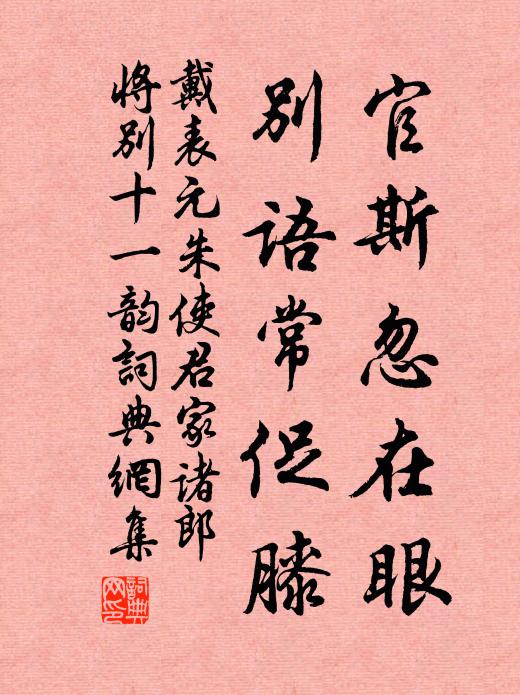 官斯忽在眼
别语常促膝
戴表元朱使君家诸郎
将别十一韵词典網集
詞典網印